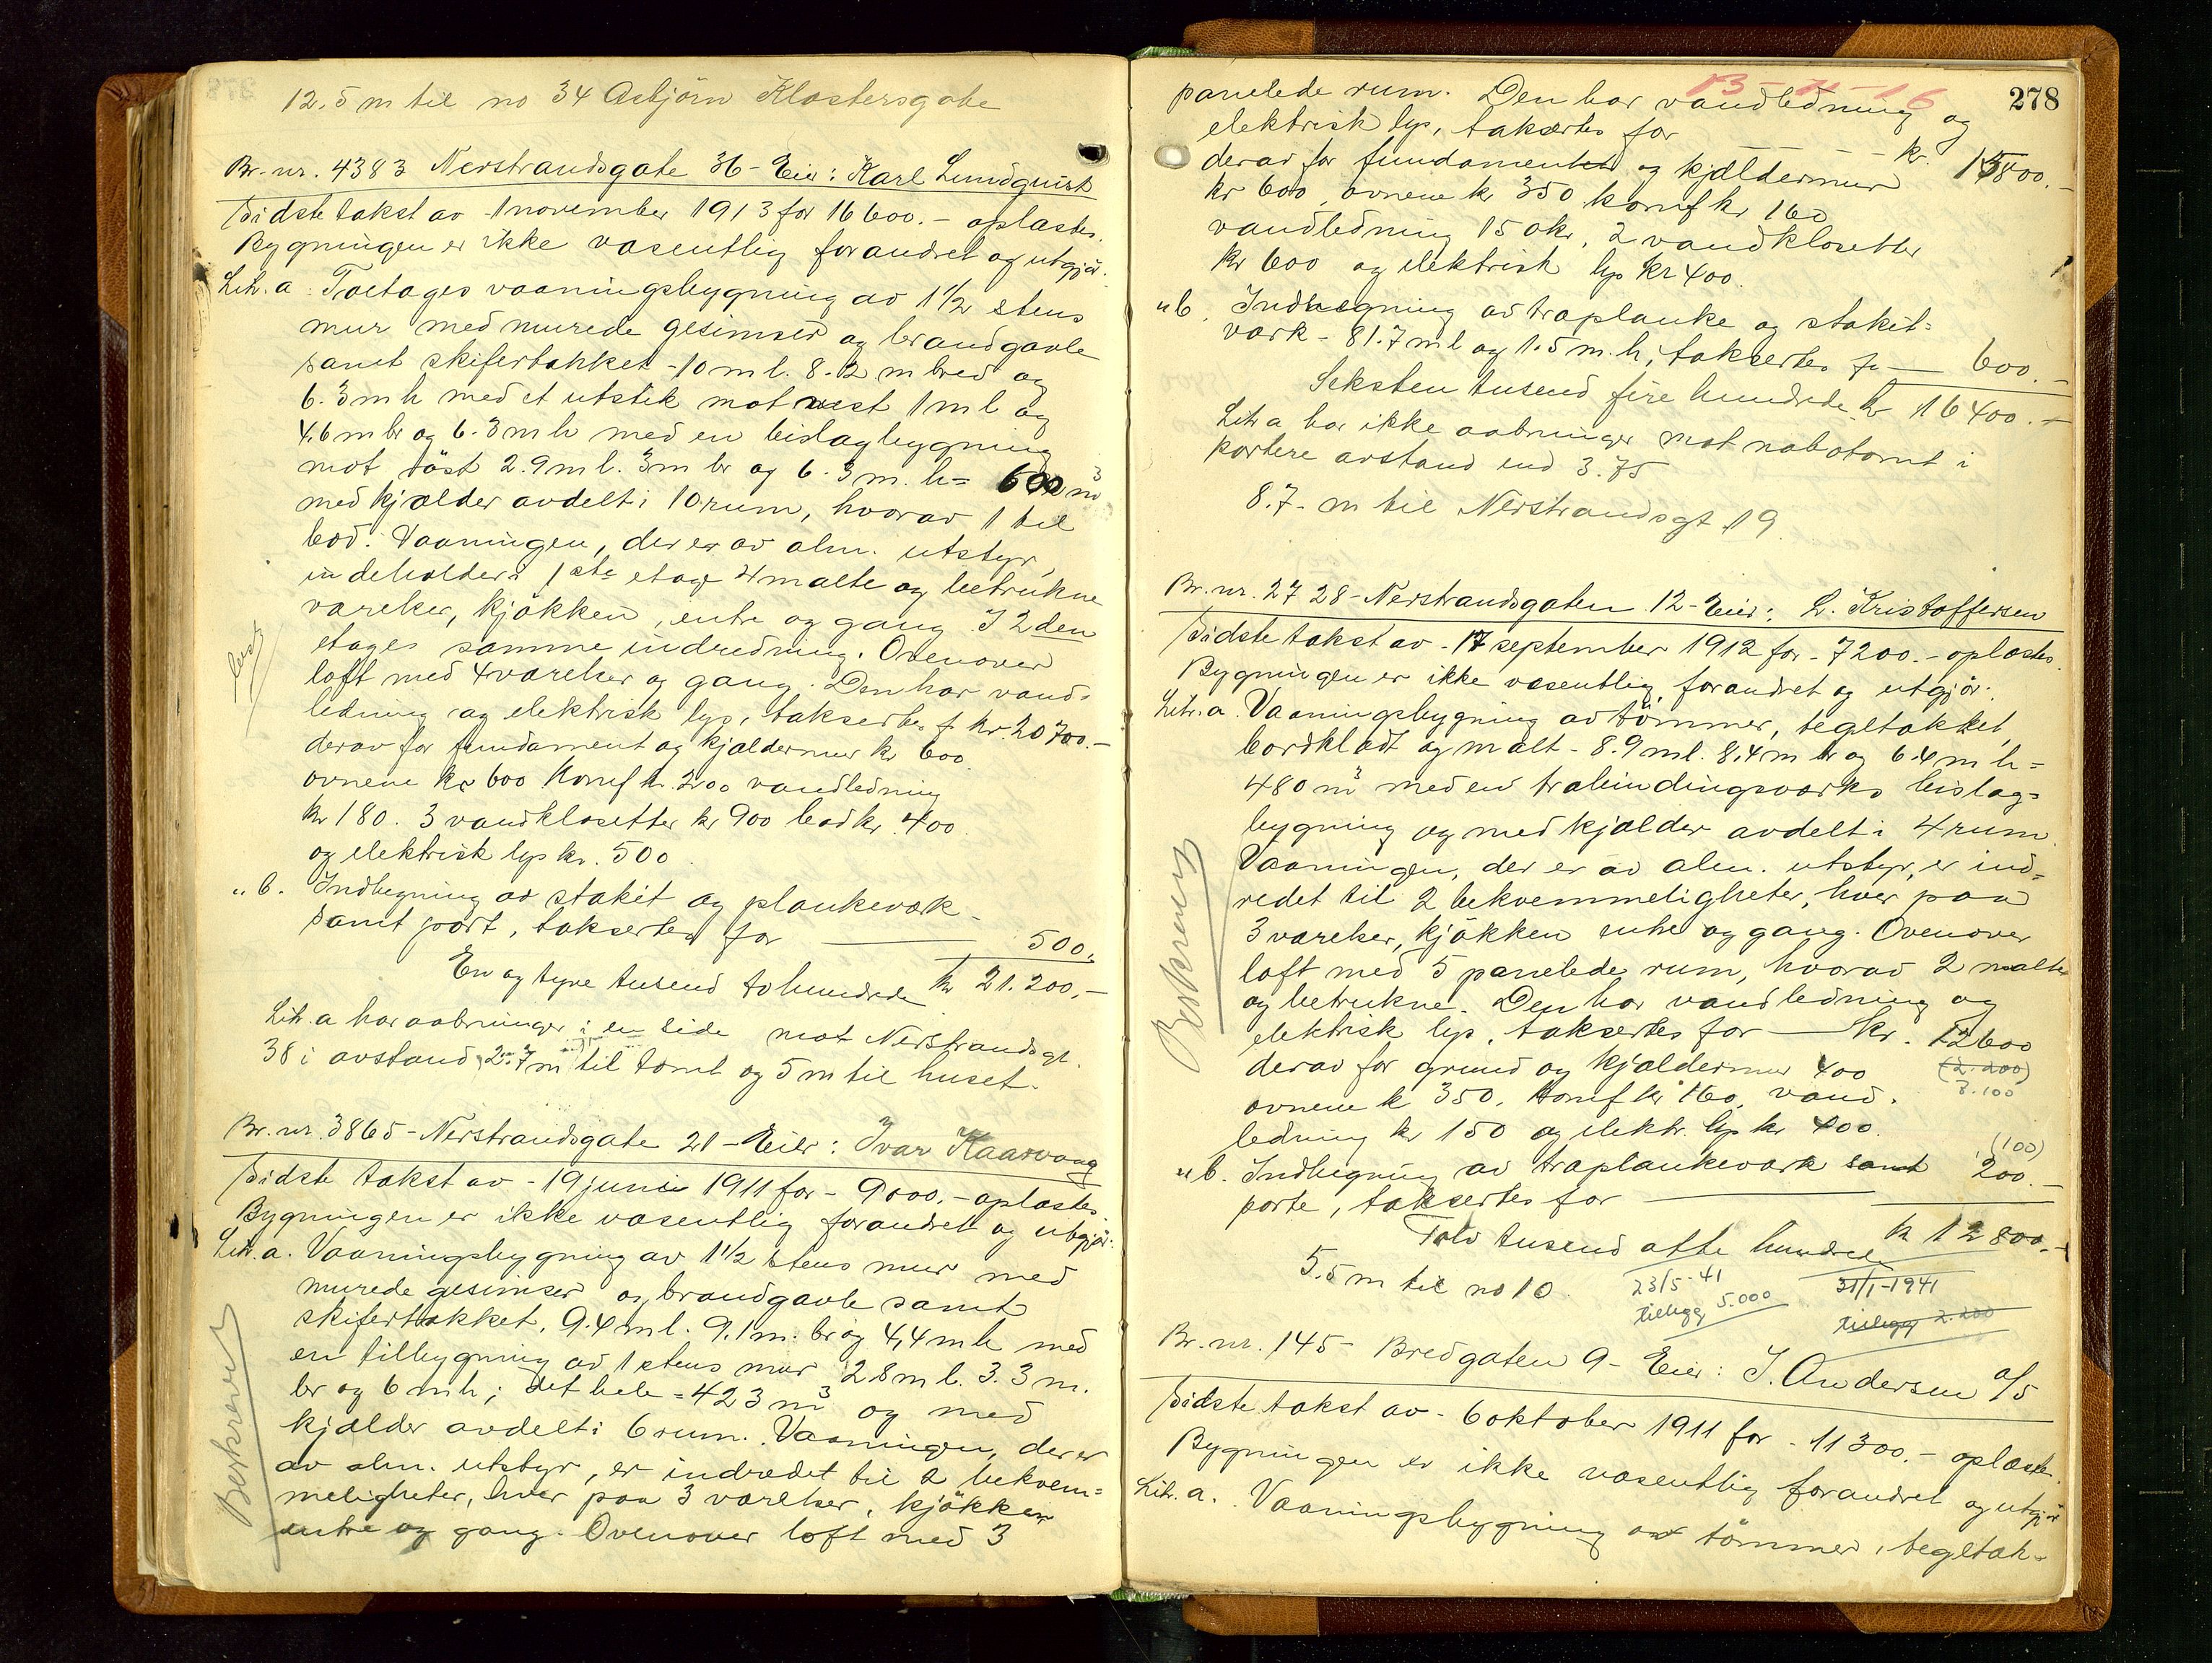 12.5 m til no 34 Asbjörn Klostersgate
Br. nr. 4383 Nerstrandsgate 36 - Eier: Karl Lundquist
Sidste takst av 1 november 1913 for 16600.- oplæstes.
Bygningen er ikke væsentlig forandret og utgjör:
Litr. a. Toetages vaaningsbygning av 1½ stens
mur med murede gesimser og brandgavle
samt skifertækket - 10 m l. 8.2 m bred og
6.3 m h med et utstik mot vest 1 m l og
4.6 m br og 6.3 m h med en bislagbygning
mot öst 2.9 m l. 3 m br og 6.3 m. h = 600 m³
med kjælder avdelt i 10 rum, hvorav 1 til
bod. Vaaningen, der er av alm. utstyr,
indeholder i 1ste etage 4 malte og betrukne
værelser, kjökken, entre og gang. I 2den
etages samme indredning. Ovenover
loft med 4 værelser og gang. Den har vand-
ledning og elektrisk lys, taksertes f. kr. 20700.-
derav for fundament og kjældermur kr 600.
ovnene kr 600 komf kr. 200 vandledning
kr 180. 3 vandklosetter kr 900 bad kr. 400.
og elektrisk lys kr. 500.
" b. Indhegning av stakit og plankeværk -
samt port, taksertes for 500.-
En og tyve tusend tohundrede kr 21.200.-
Litr. a har aabninger i en side mot Nerstrandsgt.
38 i avstand 2.7 m til tomt og 5 m til huset.
Br. nr. 3865 - Nerstrandsgate 21 - Eier: Ivar Kaarvang
Sidste takst av - 19 juni 1911 for - 9000.- oplæstes.
Bygningen er ikke væsentlig forandret og utgjör:
Litr. a. Vaaningsbygning av 1½ stens mur med
murede gesimser og brandgavle samt
skifertækket, 9.4 m l. 9.1 m. br og 4,4 m h med
en tilbygning av 1 stens mur 2.8 m l. 3.3 m.
br og 6 m h; det hele = 423 m³ og med
kjælder avdelt i 6 rum. Vaaningen, der er
av alm. utstyr, er indredet til 2 bekvem=
meligheter, hver paa 3 værelser, kjökken
entre og gang. Ovenover loft med 3
Beskrevet
13-11-16
278
panelede rum. Den har vandledning og
elektrisk lys, taksertes for kr. 15800.-
derav for fundament og kjældermur
kr 600, ovnene kr 350 komf kr. 160
vandledning 150 kr, 2 vandklosetter
kr 600 og elektrisk lys kr 400.
" b. Indhegning av traplanke og stakit=
værk - 81.7 m l og 1.5 m. h, takseres f. 600.-
Seksten tusend fire hundrede kr 16400.-
Litr a har ikke aabninger mot nabotomt i
kortere avstand end 3.75
8.7 - m til Nerstrandsgt 19.
Br. nr. 2728 - Nerstrandsgaten 12 - Eier: L. Kristoffersen
Sidste takst av - 17 september 1912 for - 7200.- oplæstes.
Bygningen er ikke væsentlig forandret og utgjör:
Litr. a. Vaaningsbygning av tömmer, tegltækket,
bordklædt og malt - 8.9 m l. 8,4 m br og 6.4 m h =
480 m³ med en trabindingsværks bislag=
bygning og med kjælder avdelt i 4 rum.
Vaaningen, der er av alm. utstyr, er ind=
redet til 2 bekvemmeligheter, hver paa
3 værelser, kjökken entre og gang. Ovenover
loft med 5 panelede rum, hvorav 2 malte
og betrukne. Den har vandledning og
elektrisk lys, takseres for kr. 12600
derav for grund og kjældermur 400 (2.200)
ovnene k 350, komf kr 160, vand- 7.100
ledning kr 150 og elektr. lys kr 400.
" b. Indhegning av traplankeværk samt (100)
porte, takseres for 200.-
Tolv tusend otte hundrede kr 12800.-
5.5 m til no 10.
23/5-41 31/1-1941
tillegg 5.000 tillegg 2.200
Beskrevet
Br. nr. 145 - Bredgaten 9 - Eier: J. Andersen a/s
Sidste takst av - 6 oktober 1911 for - 11300.- oplæstes.
Bygningen er ikke væsentlig forandret og utgjör
Litr. a. Vaaningsbygning av tömmer, tegltæk-